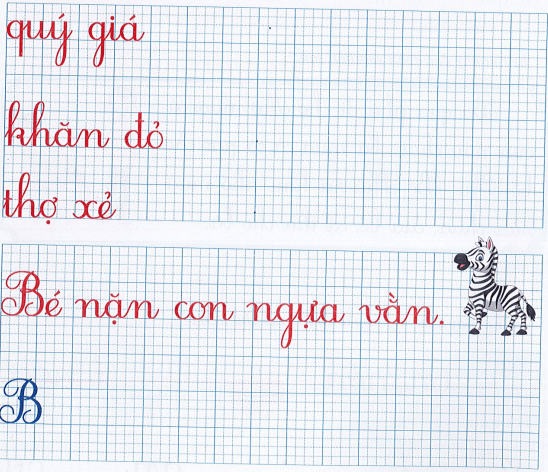 quý giá
khăn đỏ
thợ xẻ
Bé nặn con ngựa vằn.
B